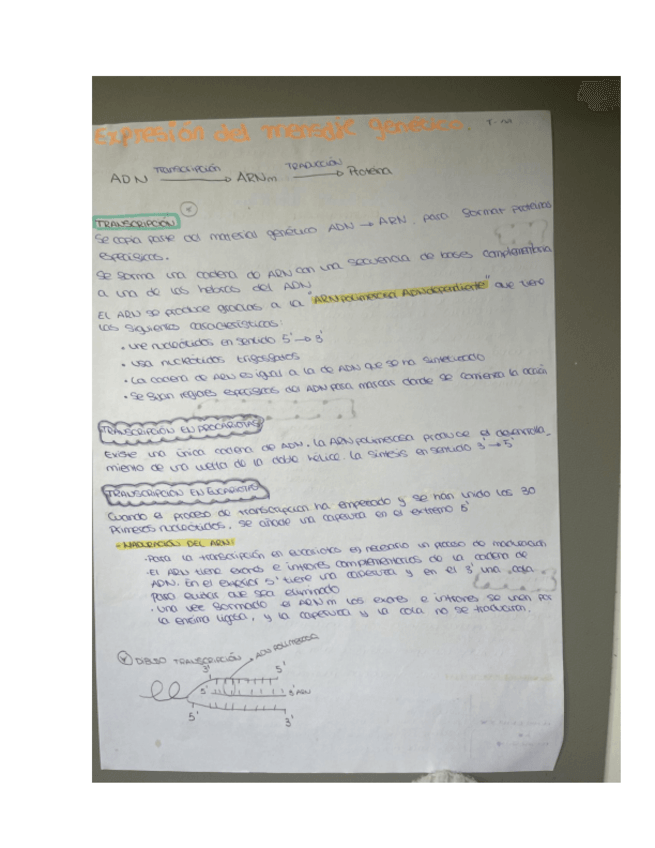 Expresión del mensaje genético. T-14
ADN TRANSCRIPCIÓN → ARNm TRADUCCIÓN → Proteína
TRANSCRIPCIÓN
Se copia parte del material genético ADN → ARN, para formar proteínas
específicas.
Se forma una cadena de ARN con una secuencia de bases complementaria
a una de las hebras del ADN
El ARN se produce gracias a la "ARN polimerasa ADN dependiente" que tiene
las siguientes características:
• une nucleótidos en sentido 5' → 3'
• usa nucleótidos trifosfatos
• La cadena de ARN es igual a la de ADN que se ha sintetizado
• Se fijan regiones específicas del ADN para marcar donde se comienza la acción
TRANSCRIPCIÓN EN PROCARIOTAS
Existe una única cadena de ADN. La ARN polimerasa produce el desenrolla-
miento de una vuelta de la doble hélice. La síntesis en sentido 3' → 5'
TRANSCRIPCIÓN EN EUCARIOTAS
Cuando el proceso de transcripción ha empezado y se han unido los 30
primeros nucleótidos, se añade una caperuza en el extremo 5'
- MADURACIÓN DEL ARN:
· Para la transcripción en eucariotas es necesario un proceso de maduración
· El ARN tiene exones e intrones complementarios de la cadena de
ADN. En el 5' tiene una caperuza y en el 3' una cola
para evitar que sea eliminado
· Una vez formado el ARNm los exones e intrones se unen por
la enzima ligasa, y la caperuza y la cola no se traducirán.
DIBUJO TRANSCRIPCIÓN
ADN POLIMERASA
3' 5'
5' 3' ARN
5' 3'